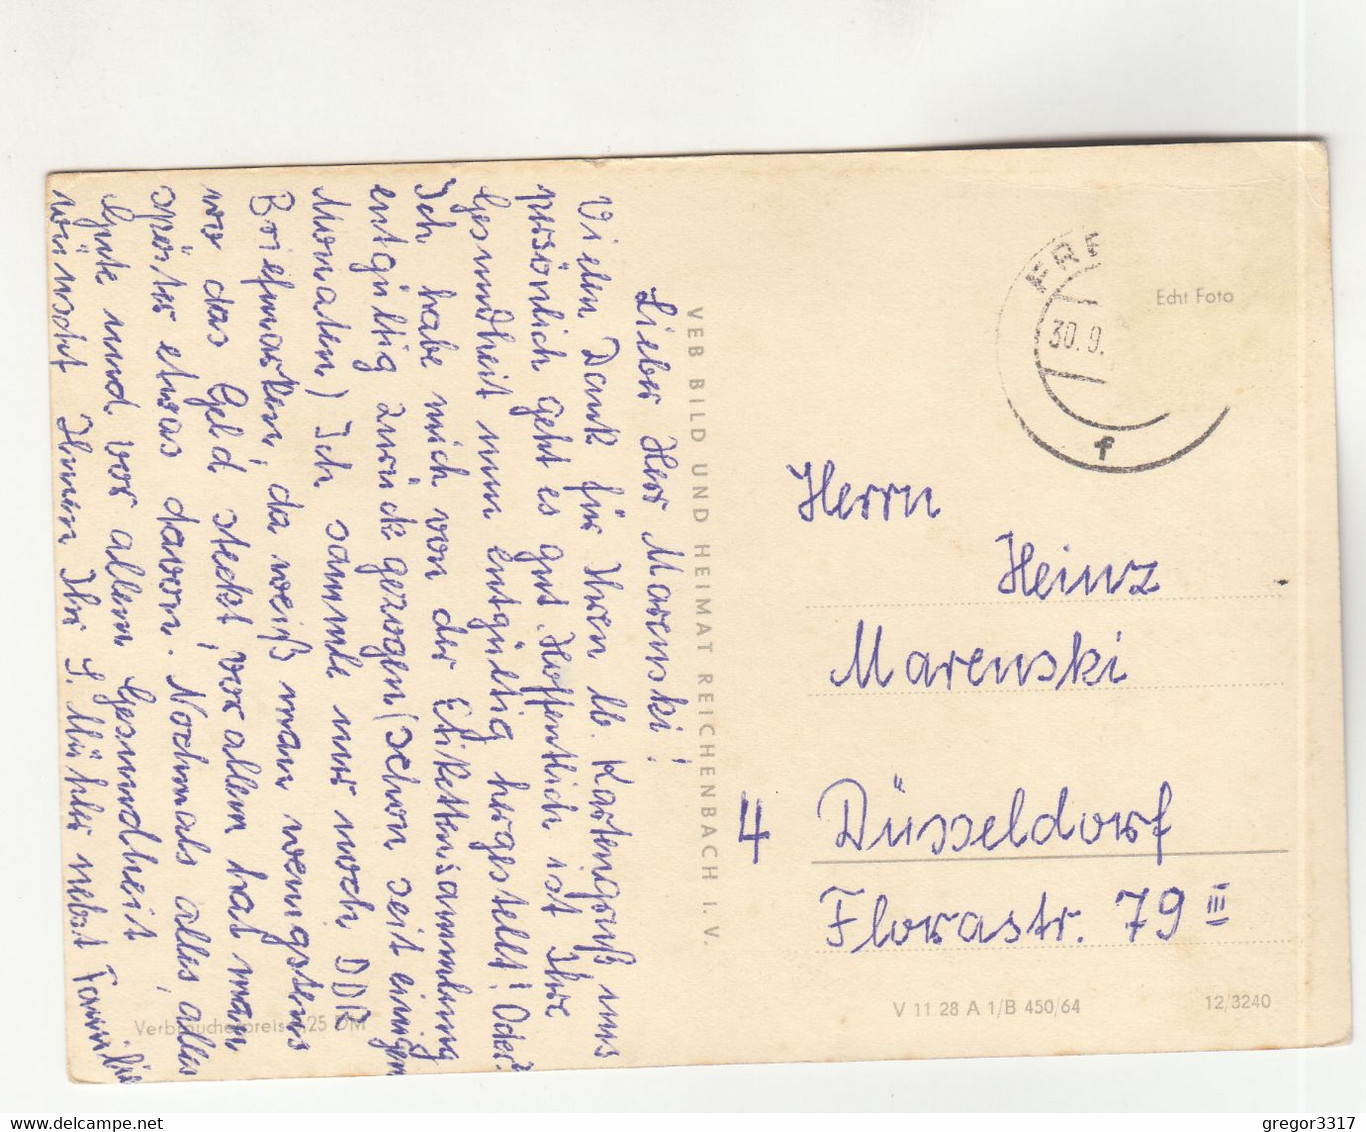 Lieber Herr Marenski!
Vielen Dank für Ihren lb. Kartengruß, uns
persönlich geht es gut. Hoffentlich ist Ihre
Gesundheit nun entgültig hergestellt! Oder?
Ich habe mich von der Etikettensammlung
entgültig zurückgezogen (schon seit einigen
Monaten) Ich sammle nur noch DDR
Briefmarken, da weiß man wenigstens
wo das Geld steckt, vor allem hat man
später etwas davon. Nochmals alles, alles
Gute und vor allem Gesundheit
wünscht Ihnen Ihr S. Mühler nebst Familie
Verbraucherpreis -,25 DM
VEB BILD UND HEIMAT REICHENBACH I. V.
FRE
30.9.
f
Echt Foto
Herrn
Heinz
Marenski
4 Düsseldorf
Florastr. 79 III
V 11 28 A 1/B 450/64
12/3240
gregor3317
delcampe.net